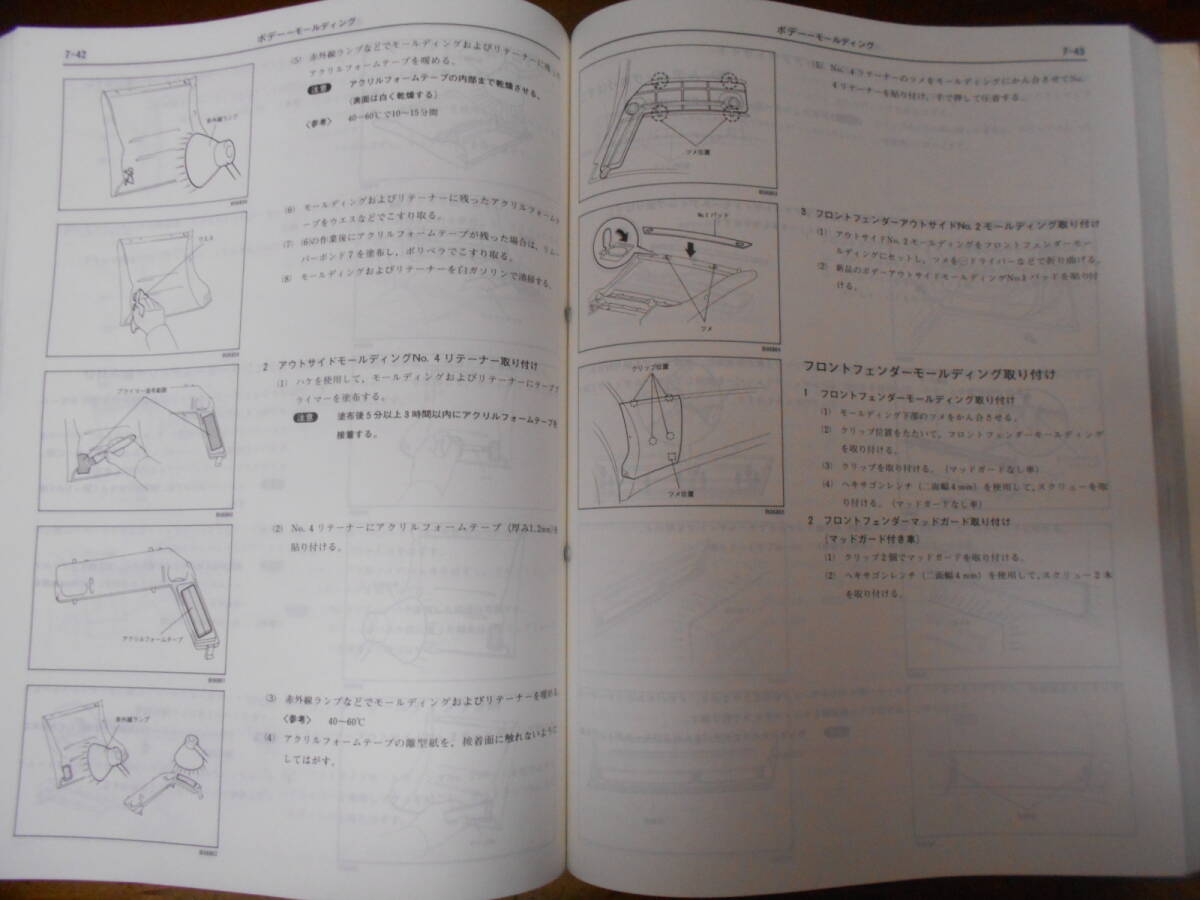 7-42
ボデー－モールディング
(5) 赤外線ランプなどでモールディングおよびリテーナーに残った
アクリルフォームテープを暖める。
注意 アクリルフォームテープの内部まで乾燥させる。
(裏面は白く乾燥する)
〈参考〉 40～60℃で10～15分間
赤外線ランプ
(6) モールディングおよびリテーナーに残ったアクリルフォームテ
ープをウエスなどでこすり取る。
(7) (6)の作業後にアクリルフォームテープが残った場合は、リムー
バーボンド7を塗布し、ポリベラでこすり取る。
(8) モールディングおよびリテーナーを白ガソリンで清掃する。
ウエス
2 アウトサイドモールディングNo. 4 リテーナー取り付け
(1) ハケを使用して，モールディングおよびリテーナーにテーププ
ライマーを塗布する。
注意 塗布後5分以上3時間以内にアクリルフォームテープを
接着する。
プライマー塗布範囲
(2) No. 4 リテーナーにアクリルフォームテープ (厚み1.2mm)を
貼り付ける。
アクリルフォームテープ
(3) 赤外線ランプなどでモールディングおよびリテーナーを暖める。
〈参考〉 40～60℃
(4) アクリルフォームテープの離型紙を、接着面に触れないように
してはがす。
赤外線ランプ
ボデー－モールディング
7-43
(5) No. 4リテーナーのツメをモールディングにかん合させてNo.
4リテーナーを貼り付け，手で押して圧着する。
ツメ位置
3 フロントフェンダーアウトサイドNo. 2 モールディング取り付け
(1) アウトサイドNo. 2モールディングをフロントフェンダーモー
ルディングにセットし，ツメを⊖ドライバーなどで折り曲げる。
(2) 新品のボデーアウトサイドモールディングNo.1パッドを貼り付
ける。
No.1パッド
ツメ
フロントフェンダーモールディング取り付け
1 フロントフェンダーモールディング取り付け
(1) モールディング下部のツメをかん合させる。
(2) クリップ位置をたたいて，フロントフェンダーモールディング
を取り付ける。
(3) クリップを取り付ける。(マッドガードなし車)
(4) ヘキサゴンレンチ (二面幅4mm) を使用して，スクリューを取
り付ける。(マッドガードなし車)
クリップ位置
ツメ位置
2 フロントフェンダーマッドガード取り付け
(マッドガード付き車)
(1) クリップ2個でマッドガードを取り付ける。
(2) ヘキサゴンレンチ (二面幅4mm) を使用して，スクリュー2本
を取り付ける。